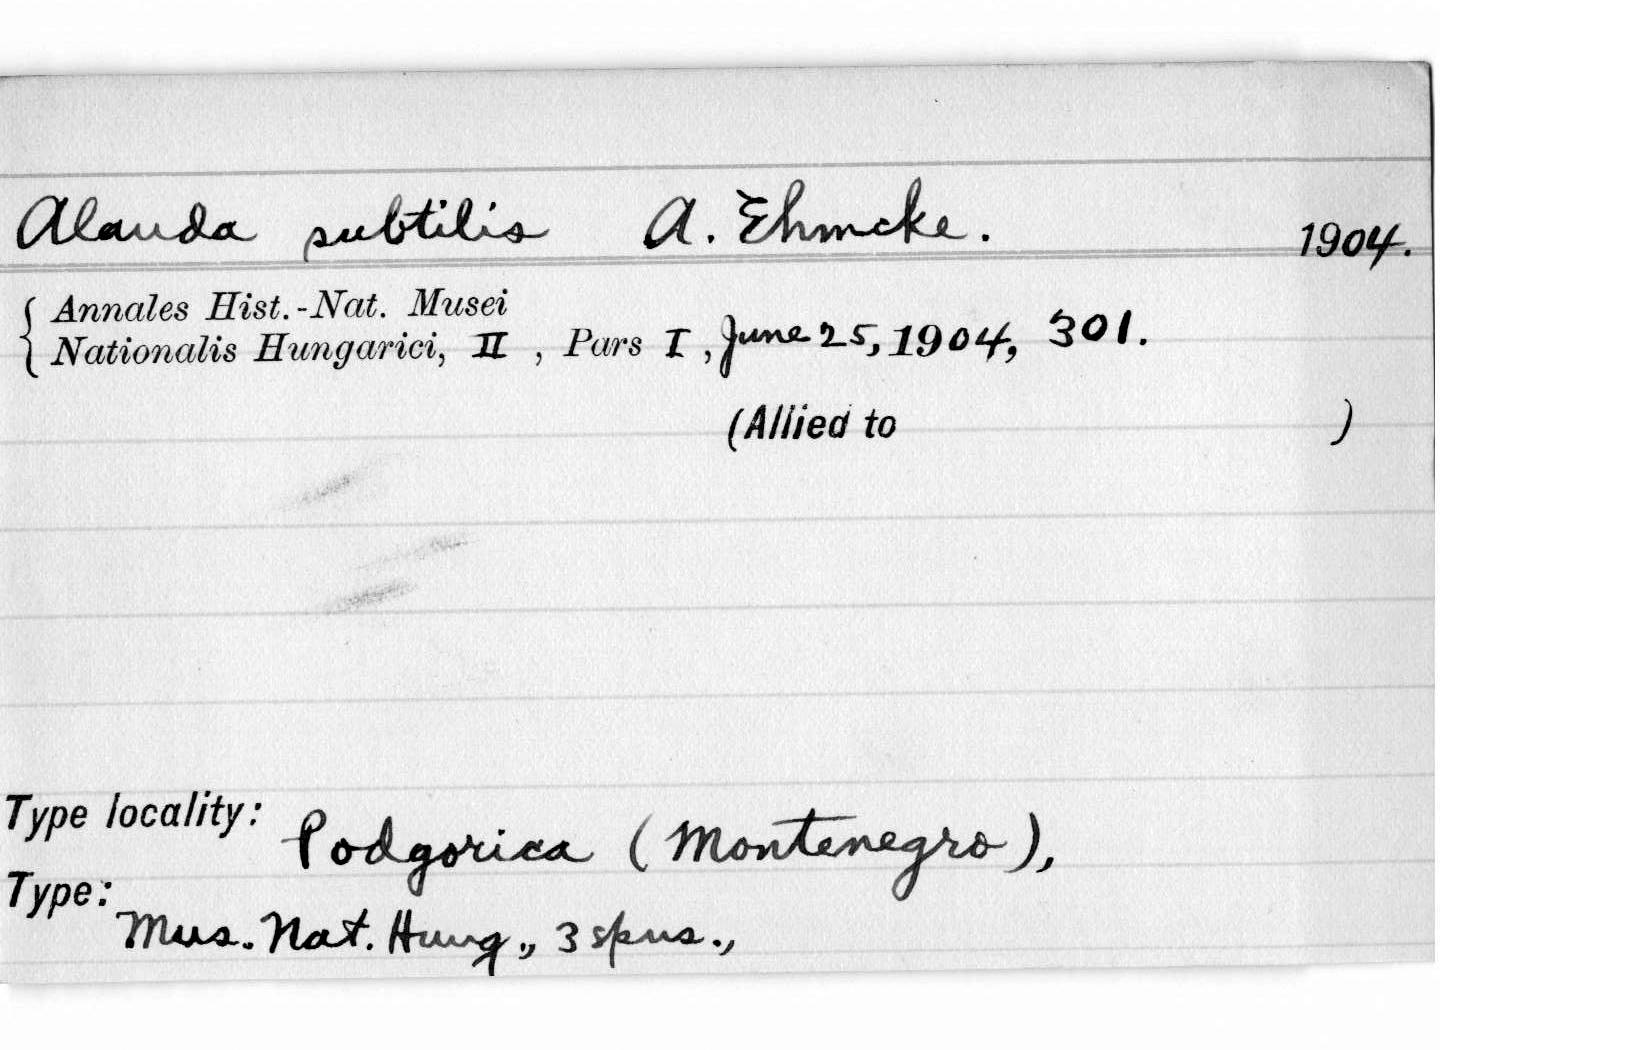 Alauda subtilis A. Ehmcke. 1904.
{ Annales Hist.-Nat. Musei
Nationalis Hungarici, II , Pars I , June 25, 1904, 301.
(Allied to )
Type locality: Podgorica (Montenegro),
Type:
Mus. Nat. Hung., 3 spns.,